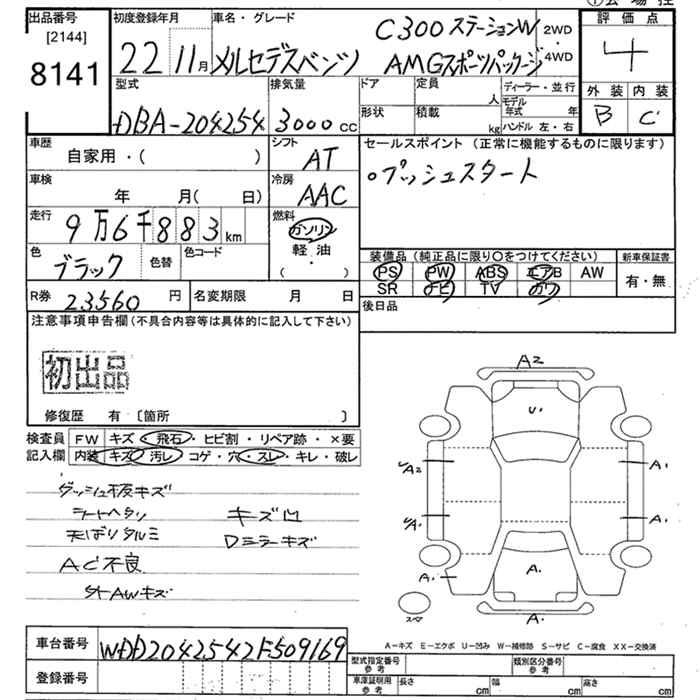 出品番号
[2144]
8141
初度登録年月
22 11月
車名・グレード
メルセデスベンツ
C300 ステーションW
AMGスポーツパッケージ
2WD
・
4WD
評価点
4
外装 内装
B C
型式
DBA-204254
排気量
3000cc
ドア
形状
定員 人
積載 kg
ディーラー・並行
モデル年式 年
ハンドル 左・右
車歴
自家用・( )
シフト
AT
車検
年 月( 日)
冷房
AAC
走行
9万6千883km
燃料
ガソリン
軽・油
・( )
色
ブラック
色替
色コード
R券 23560円
名変期限 月 日
セールスポイント (正常に機能するものに限ります)
○プッシュスタート
装備品 (純正品に限り○をつけてください)
PS PW ABS エアB AW
SR ナビ TV カワ
新車保証書
有・無
後日品
注意事項申告欄(不具合内容等は具体的に記入して下さい)
初出品
修復歴 有 〔箇所 〕
検査員記入欄
FW キズ・飛石・ヒビ割・リペア跡・×要
内装 キズ・汚レ・コゲ・穴・スレ・キレ・破レ
ダッシュ板キズ
シートヘタリ
天ばりタルミ
AC不良
外AWキズ
キズ凹
Dミラーキズ
A2
U.
A2
A1
A.
A.
A.
A.
A.
スペア
A-キズ E-エクボ U-凹み W-補修跡 S-サビ C-腐食 XX-交換済
車台番号 WDD2042542F509169
登録番号
型式指定番号 参考
類別区分番号 参考
車庫証明用 参考
長さ cm
幅 cm
高さ cm